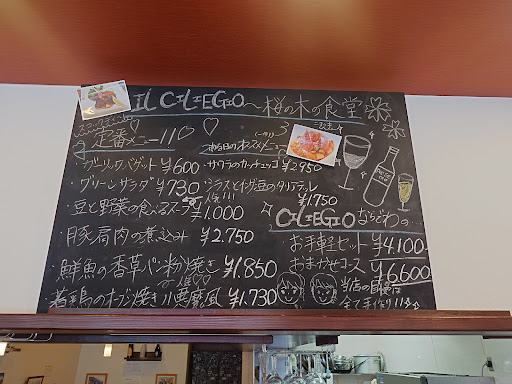 IL CILIEGIO～桜の木の食堂
定番メニュー!!
ガーリックバゲット ¥600
グリーンサラダ ¥730
豆と野菜の食べるスープ ¥1.000
豚肩肉の煮込み ¥2.750
鮮魚の香草パン粉焼き ¥1.850
若鶏のオーブン焼き 小悪魔風 ¥1.730
本日のオススメメニュー
サワラのカッチュッコ ¥2950
シラスとインゲン豆のタリアテッレ
¥1.750
CILIEGIOならではの
お手軽セット ¥4.100
おまかせコース ¥6,600
当店の自慢は
全て手作り!!